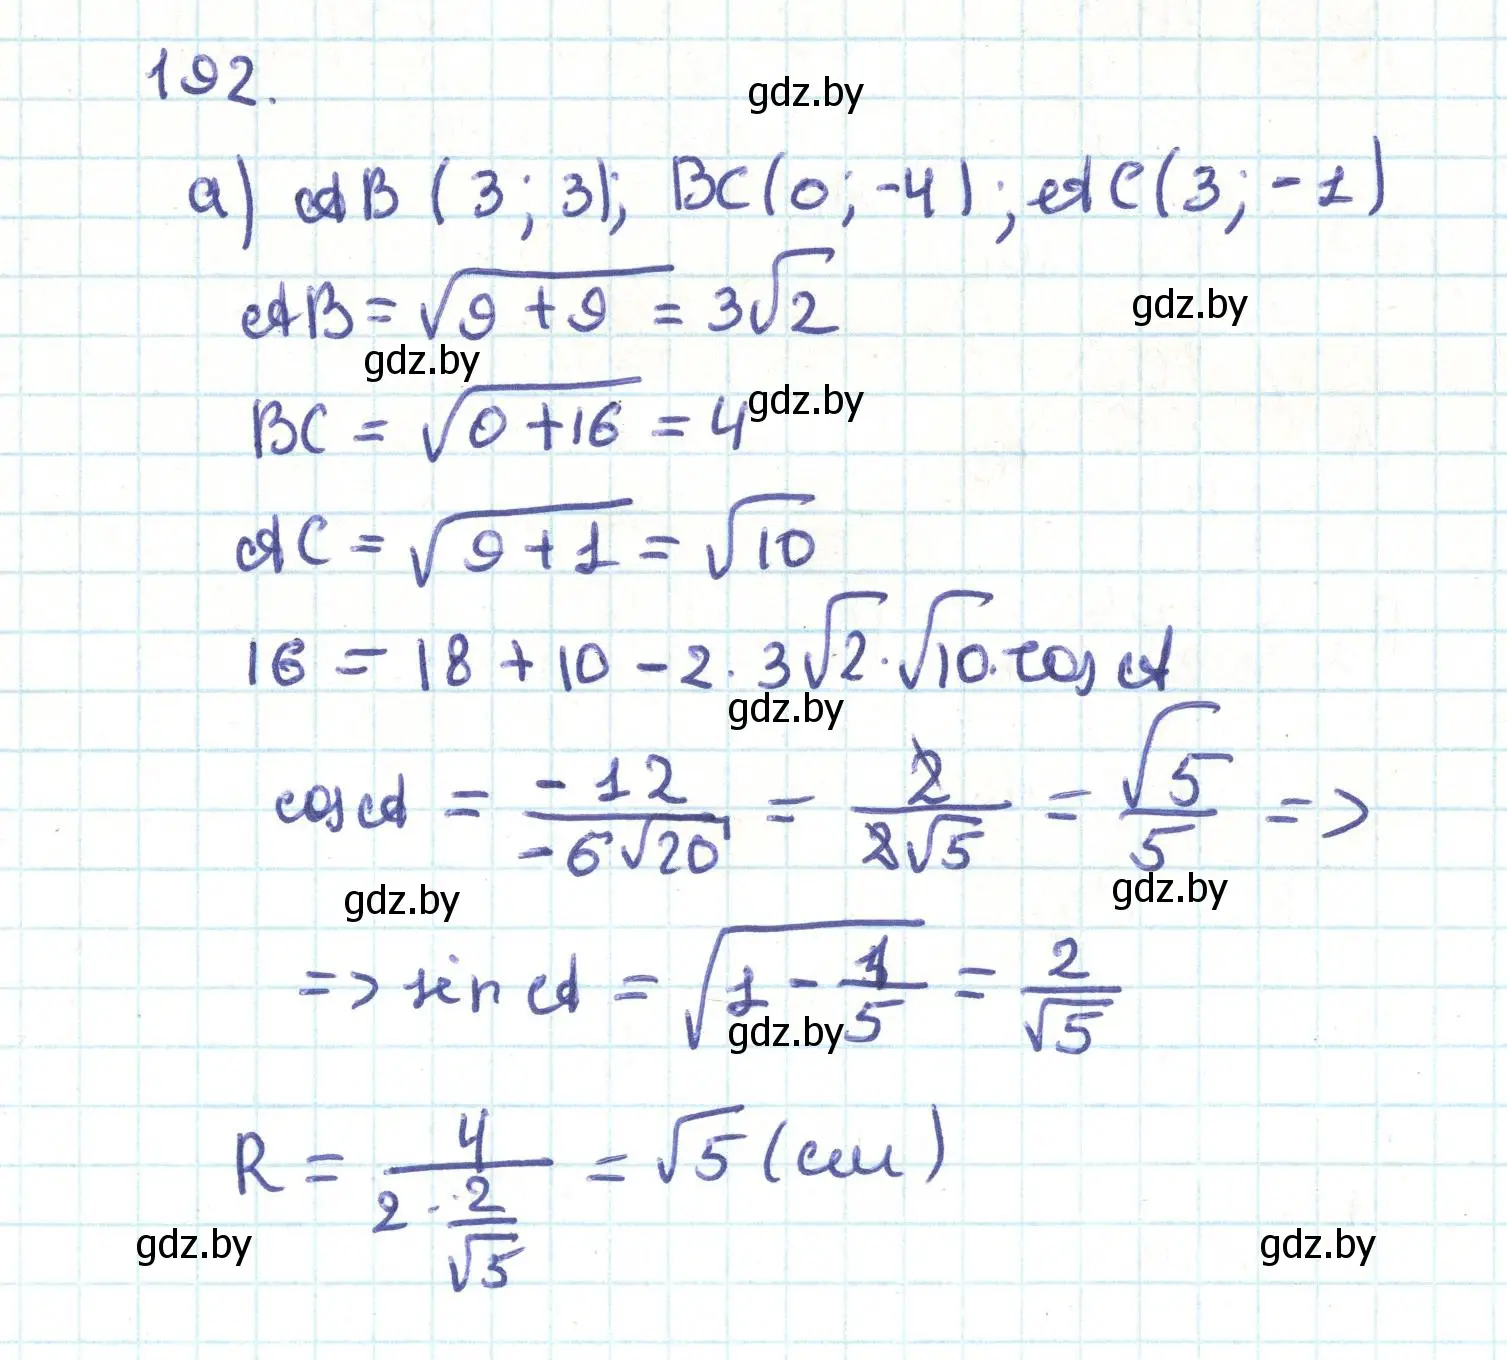 192.
gdz.by
а) AB (3; 3); BC(0; -4); AC(3; -1)
AB = √(9 + 9) = 3√2
gdz.by
gdz.by
BC = √(0 + 16) = 4
gdz.by
AC = √(9 + 1) = √10
16 = 18 + 10 - 2 · 3√2 · √10 · cos A
gdz.by
cos A = -12/(-6√20) = 2/(2√5) = √5/5 =>
gdz.by
gdz.by
=> sin A = √(1 - 1/5) = 2/√5
gdz.by
R = 4/(2 · 2/√5) = √5 (см)
gdz.by
gdz.by